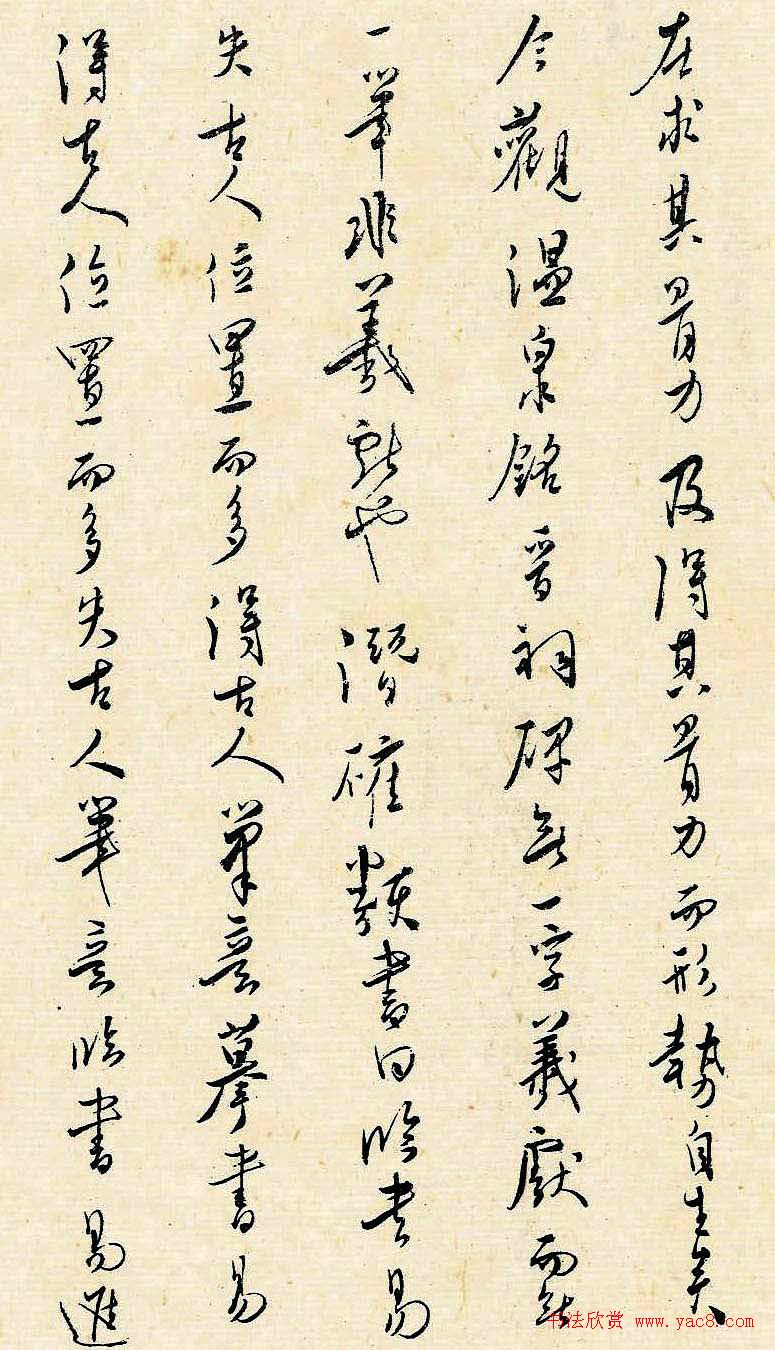 在求其骨力及得其骨力而形勢自生矣
今觀溫泉銘晉祠碑無一字羲獻而無
一筆非羲獻也潛確類書曰臨書易
失古人位置而多得古人筆意摹書易
得古人位置而多失古人筆意臨書易進
书法欣赏 www.yac8.com